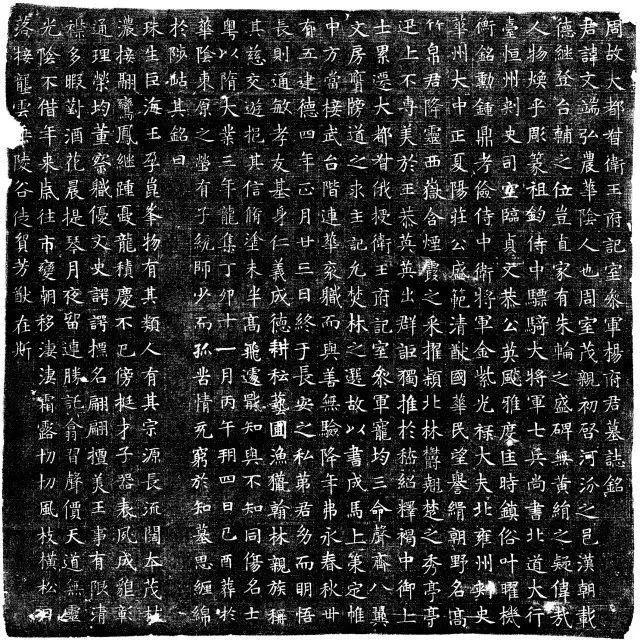 周故大都督衛王府記室參軍楊府君墓誌銘
君諱文端弘農華陰人也周室茂親初啓河汾之邑漢朝載
德繼登台輔之位豈直家有朱輪之盛碑無黃絹之疑偉哉
人物煥乎彫篆祖鈞侍中驃騎大將軍士兵尚書北道大行
臺恒州刺史司空臨貞文恭公英飈雅度匡時鎮俗叶曜機
衡銘勳鍾鼎考儉侍中衛將軍金紫光祿大夫北雍州刺史
華州大中正夏陽莊公盛範清猷國華民望譽縟朝野名高
竹帛君降靈西嶽含煙霞之來擢穎北林欝翹楚之秀亭亭
迥上不專美於王恭英英出群詎獨推於嵇紹釋褐中御上
士累遷大都督俄授衛王府記室參軍寵均三命聲齊八翼
文房膏牓道之求主記允焚林之選故以書成馬上策定帷
中方當接武台階連華袞職而與善無驗降年弗永春秋卅
有五建德四年正月廿三日終于長安之私第君多而明悟
長則通敏孝友基身仁義成德耕耘藝圃漁獵翰林親族稱
其慈交遊挹其信脩塗未半高飛遽戢知與不知同傷名士
粵以隋大業三年龍集丁卯十一月丙午朔四日己酉葬於
華陰東原之塋有子統師少而孤苦情無窮於知墓思纏綿
於陟岵其銘曰
珠生巨海玉孕崑峯物有其類人有其宗源長流闊本茂林
濃接翮鸞鳳繼踵夔龍積慶不已傍挺才子器表夙成雅彰
通理榮均董齋職優文史諤諤擅名翩翩擅美王事有限清
襟多暇對酒花晨提琴月夜留連勝託翕習聲價天道無靈
光陰不借年來歲往市變朝移淒淒霜露切切風枝橫松
落接龍雲 陵谷徒貿芳猷在斯